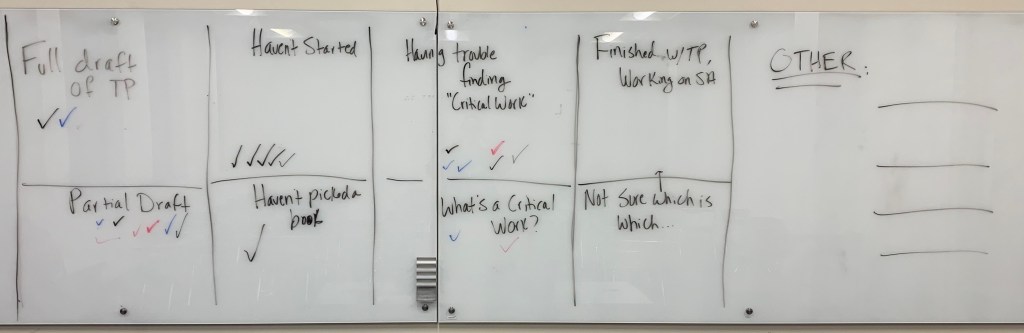 Full draft
of TP
Haven't Started
Having trouble
finding
"Critical Work"
Finished w/TP,
Working on SA
OTHER:
Partial Draft
Haven't picked a
book
What's a Critical
Work?
Not Sure which is
which...